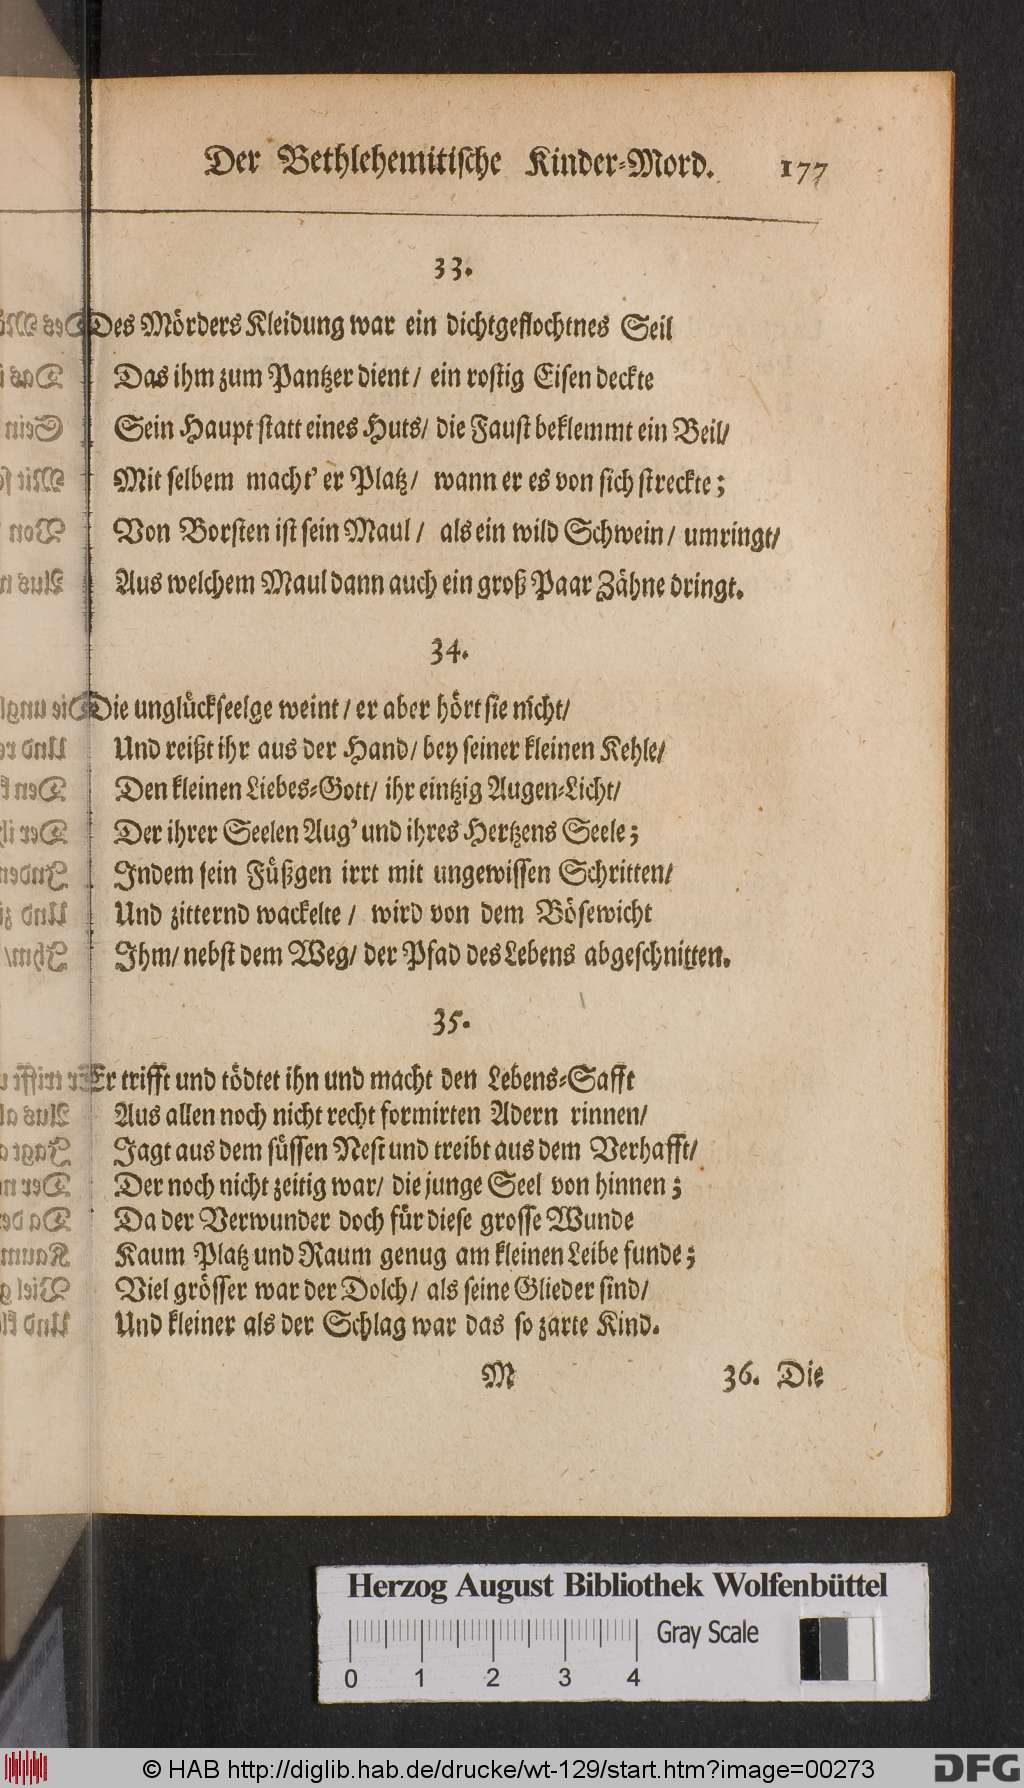 Der Bethlehemitische Kinder-Mord. 177
33.
Des Mörders Kleidung war ein dichtgeflochtnes Seil
Das ihm zum Pantzer dient/ ein rostig Eisen deckte
Sein Haupt statt eines Huts/ die Faust beklemmt ein Beil/
Mit selbem macht' er Platz/ wann er es von sich streckte;
Von Borsten ist sein Maul/ als ein wild Schwein/ umringt/
Aus welchem Maul dann auch ein groß Paar Zähne dringt.
34.
Die unglückseelge weint/ er aber hört sie nicht/
Und reißt ihr aus der Hand/ bey seiner kleinen Kehle/
Den kleinen Liebes-Gott/ ihr eintzig Augen-Licht/
Der ihrer Seelen Aug' und ihres Hertzens Seele;
Indem sein Füßgen irrt mit ungewissen Schritten/
Und zitternd wackelte/ wird von dem Bösewicht
Ihm/ nebst dem Weg/ der Pfad des Lebens abgeschnitten.
35.
Er trifft und tödtet ihn und macht den Lebens-Safft
Aus allen noch nicht recht formirten Adern rinnen/
Jagt aus dem süssen Nest und treibt aus dem Verhafft/
Der noch nicht zeitig war/ die junge Seel von hinnen;
Da der Verwunder doch für diese grosse Wunde
Kaum Platz und Raum genug am kleinen Leibe funde;
Viel grösser war der Dolch/ als seine Glieder sind/
Und kleiner als der Schlag war das so zarte Kind.
M 36. Die
Herzog August Bibliothek Wolfenbüttel
Gray Scale
0 1 2 3 4
© HAB http://diglib.hab.de/drucke/wt-129/start.htm?image=00273
DFG